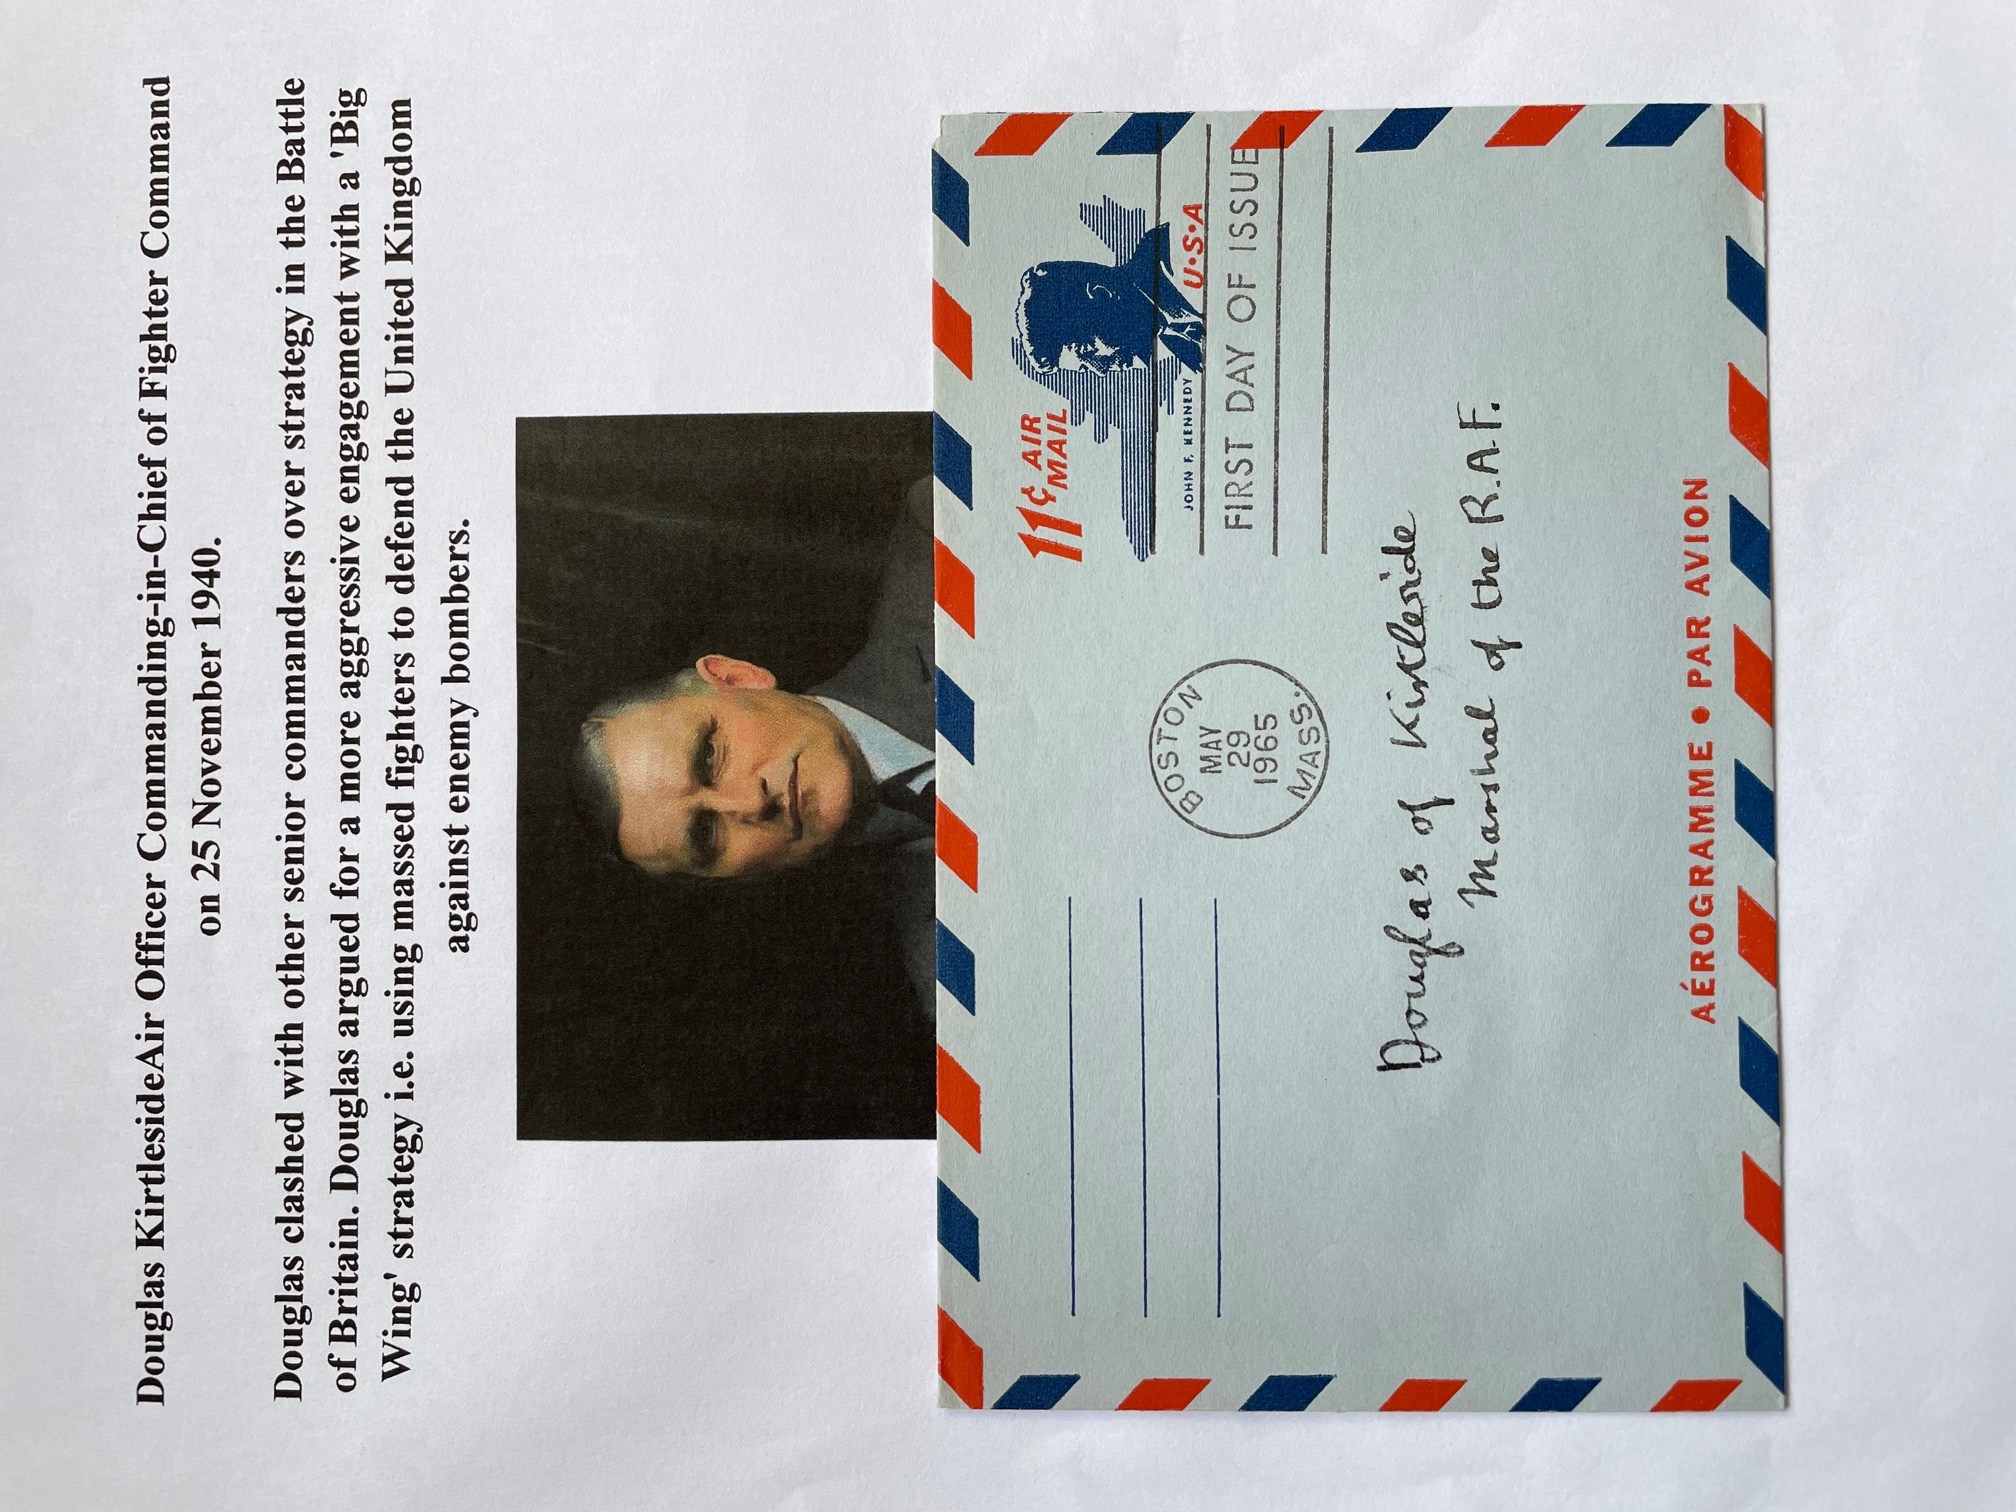 Douglas KirtlesideAir Officer Commanding-in-Chief of Fighter Command
on 25 November 1940.
Douglas clashed with other senior commanders over strategy in the Battle
of Britain. Douglas argued for a more aggressive engagement with a 'Big
Wing' strategy i.e. using massed fighters to defend the United Kingdom
against enemy bombers.
11¢ AIR
MAIL
JOHN F. KENNEDY
U·S·A
FIRST DAY OF ISSUE
BOSTON
MAY
29
1965
MASS.
Douglas of Kirtleside
Marshal of the R.A.F.
AÉROGRAMME • PAR AVION